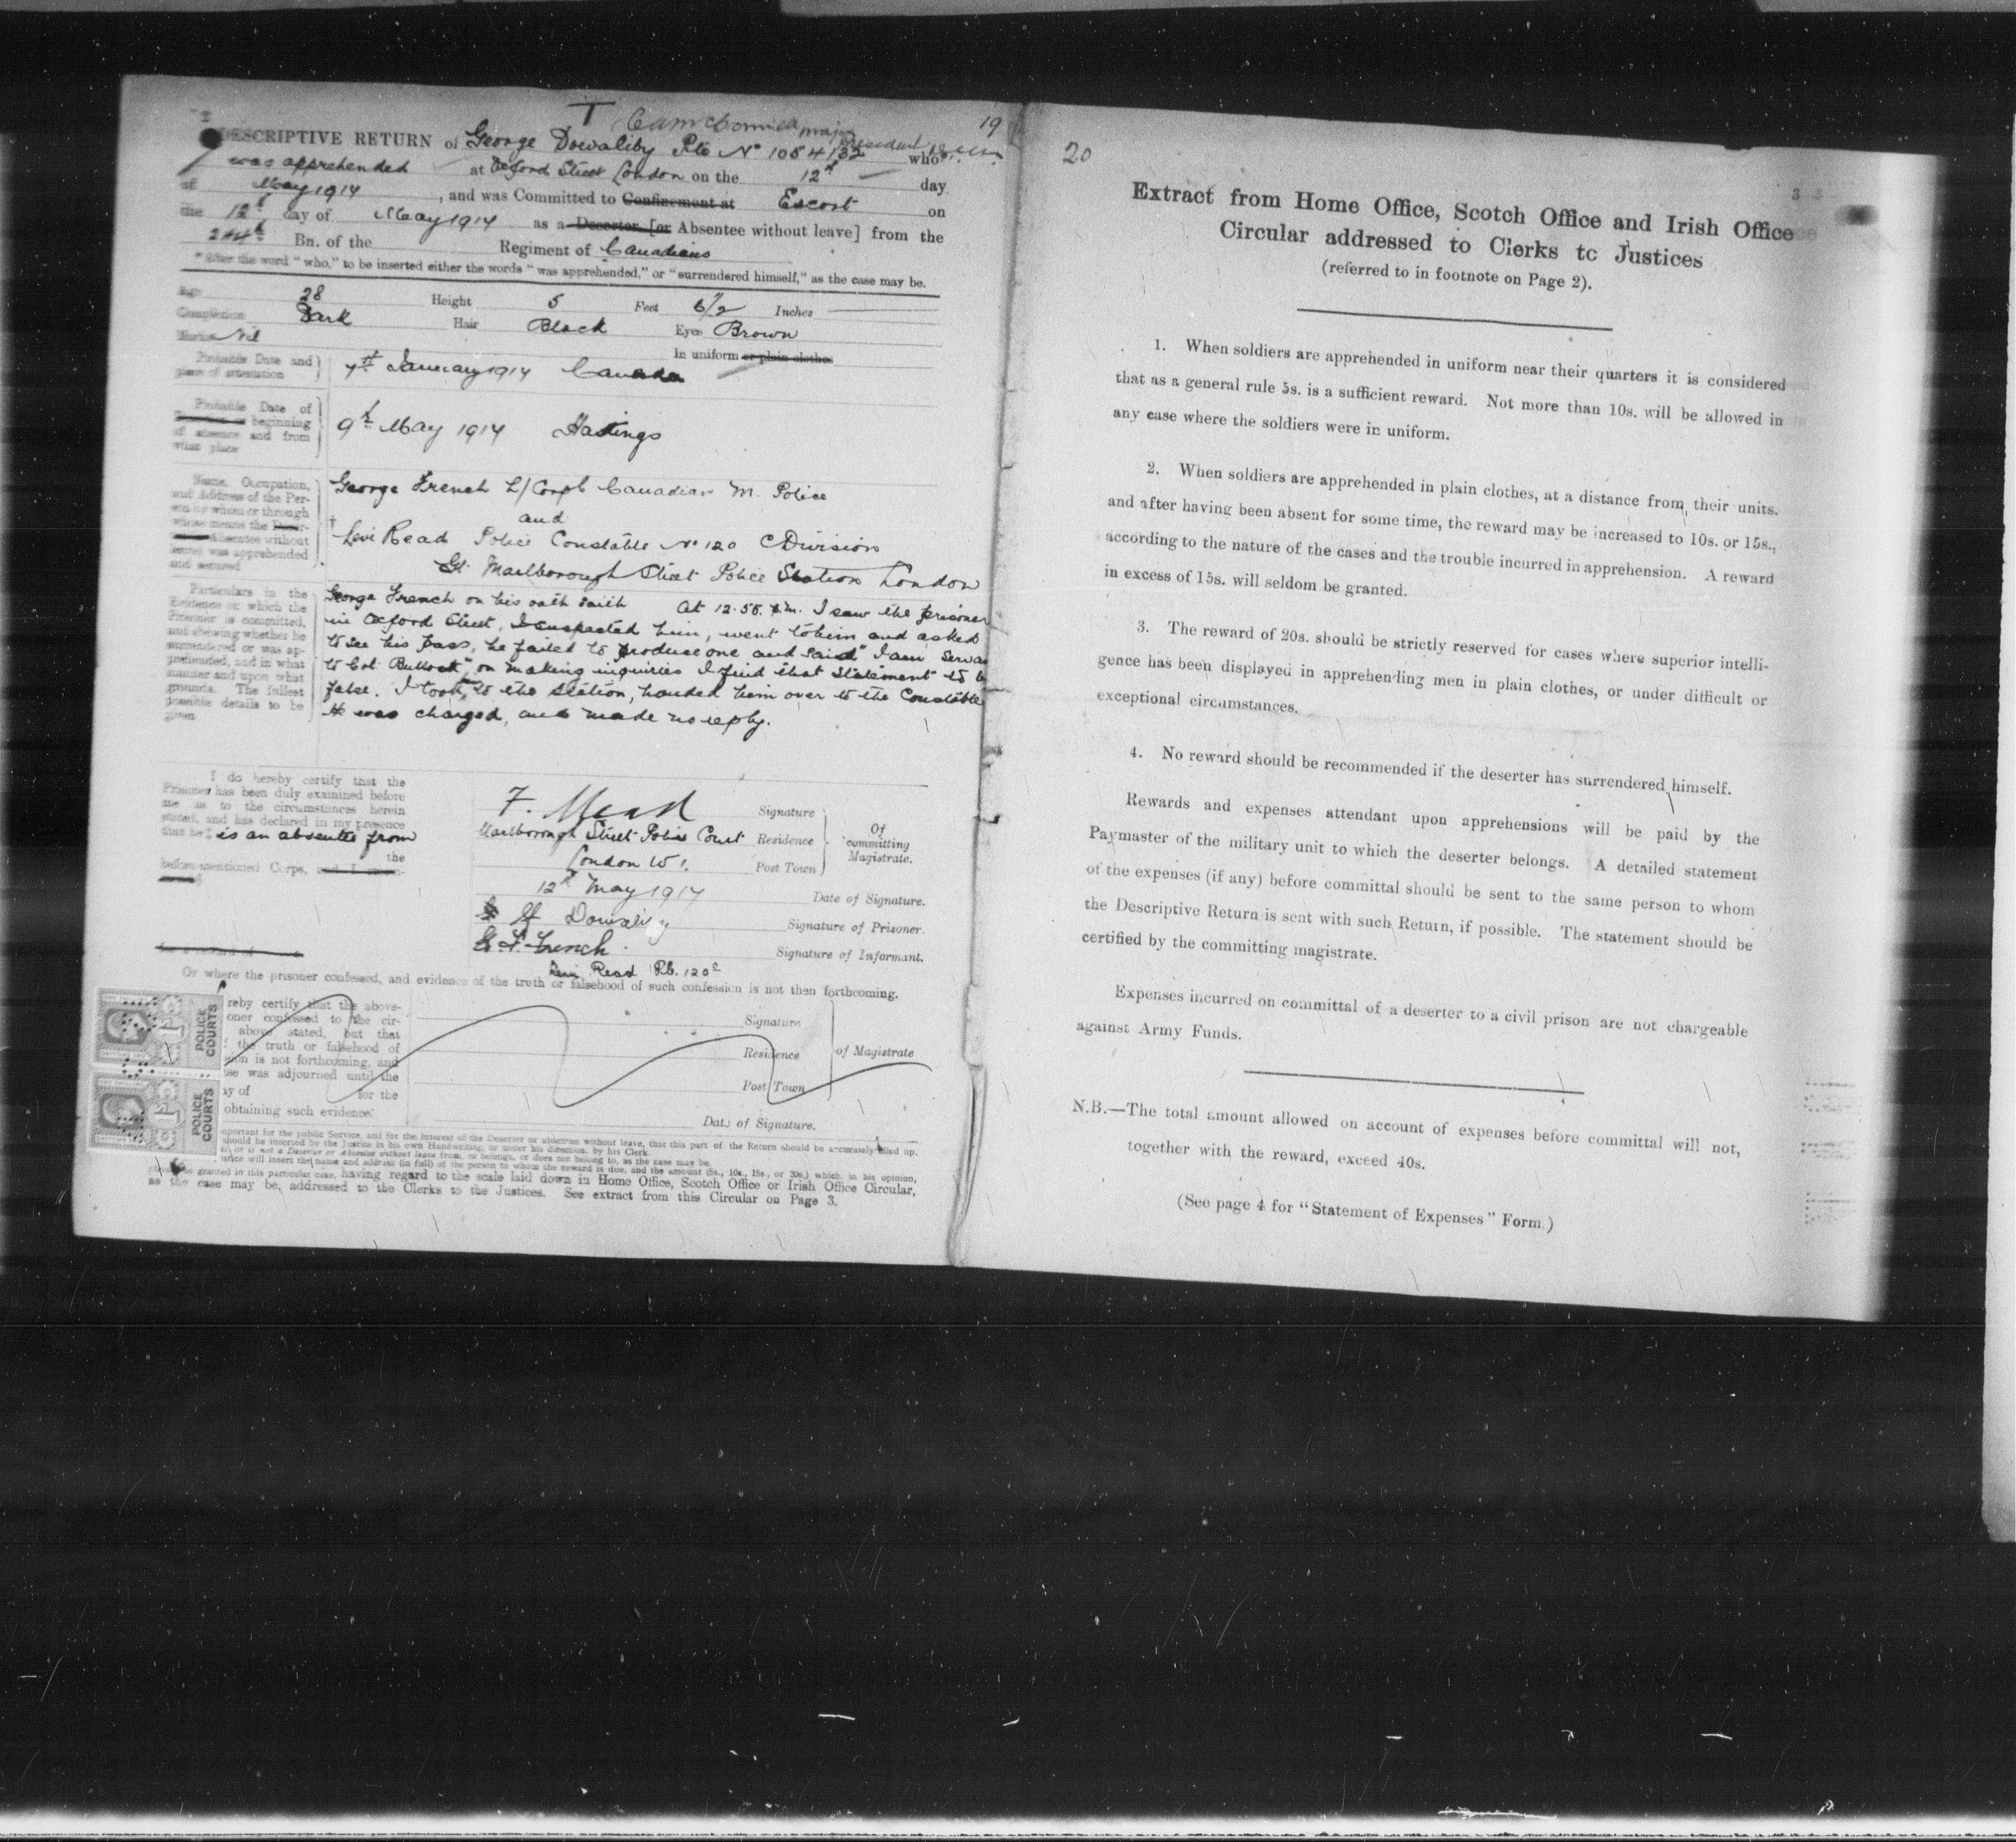 T
major
President
19
DESCRIPTIVE RETURN of George Dowaliby Pte No 1054132 who
was apprehended at Oxford Street London on the 12th day
of May 1917, and was Committed to Confinement at Escort on
the 12th day of May 1917 as a Deserter [or Absentee without leave] from the
244th Bn. of the Regiment of Canadians
* After the word "who," to be inserted either the words "was apprehended," or "surrendered himself," as the case may be.
Age 28 Height 5 Feet 6½ Inches
Complexion Dark Hair Black Eyes Brown
Marks Nil In uniform or plain clothes
Probable Date and
place of attestation
7th January 1917 Canada
Probable Date of
beginning
of absence and from
what place
9th May 1917 Hastings
Name, Occupation,
and Address of the Per-
son by whom or through
whose means the Deser-
Absentee without
leave] was apprehended
and secured
George French L/Corpl Canadian M. Police
and
† Levi Read Police Constable No 120 C Division
Gt. Marlborough Street Police Station London
Particulars in the
Evidence on which the
Prisoner is committed,
and shewing whether he
surrendered or was ap-
prehended, and in what
manner and upon what
grounds. The fullest
possible details to be
given
George French on his oath saith At 12.55. p.m. I saw the prisoner
in Oxford Street, I suspected him, went to him and asked
to see his pass, he failed to produce one and said "I am Servan
to Col. Bullock", on making inquiries I find that Statement to b
false. I took, to the Station, handed him over to the Constable
He was charged, and made no reply.
I do hereby certify that the
Prisoner has been duly examined before
me as to the circumstances herein
stated, and has declared in my presence
that he ‡ is an absentee from
the
before-mentioned Corps,
F. Mead Signature
Marlborough Street Police Court Residence
London W1. Post Town
Of
committing
Magistrate.
12th May 1917 Date of Signature.
G Dowaliby Signature of Prisoner.
G. F. French. Signature of Informant.
Levi Read P.C. 120 C
Or where the prisoner confessed, and evidence of the truth or falsehood of such confession is not then forthcoming.
reby certify that the above-
oner confessed to the cir-
above stated, but that
the truth or falsehood of
sion is not forthcoming, and
se was adjourned until the
ay of for the
obtaining such evidence.
Signature
Residence
Post Town
of Magistrate
Date of Signature.
POLICE
COURTS
POLICE
COURTS
portant for the public Service, and for the interest of the Deserter or absentee without leave, that this part of the Return should be accurately filled up.
hould be inserted by the Justice in his own Handwriting, or under his direction, by his Clerk.
or is not a Deserter or Absentee without leave from, or belongs, or does not belong to, as the case may be.
ustice will insert the name and address (in full) of the person to whom the reward is due, and the amount (5s., 10s., 15s., or 20s.) which, in his opinion,
be granted in this particular case, having regard to the scale laid down in Home Office, Scotch Office or Irish Office Circular,
as the case may be, addressed to the Clerks to the Justices. See extract from this Circular on Page 3.
20
3
Extract from Home Office, Scotch Office and Irish Office
Circular addressed to Clerks to Justices
(referred to in footnote on Page 2).
1. When soldiers are apprehended in uniform near their quarters it is considered
that as a general rule 5s. is a sufficient reward. Not more than 10s. will be allowed in
any case where the soldiers were in uniform.
2. When soldiers are apprehended in plain clothes, at a distance from their units.
and after having been absent for some time, the reward may be increased to 10s. or 15s.,
according to the nature of the cases and the trouble incurred in apprehension. A reward
in excess of 15s. will seldom be granted.
3. The reward of 20s. should be strictly reserved for cases where superior intelli-
gence has been displayed in apprehending men in plain clothes, or under difficult or
exceptional circumstances.
4. No reward should be recommended if the deserter has surrendered himself.
Rewards and expenses attendant upon apprehensions will be paid by the
Paymaster of the military unit to which the deserter belongs. A detailed statement
of the expenses (if any) before committal should be sent to the same person to whom
the Descriptive Return is sent with such Return, if possible. The statement should be
certified by the committing magistrate.
Expenses incurred on committal of a deserter to a civil prison are not chargeable
against Army Funds.
N.B.—The total amount allowed on account of expenses before committal will not,
together with the reward, exceed 40s.
(See page 4 for "Statement of Expenses" Form.)